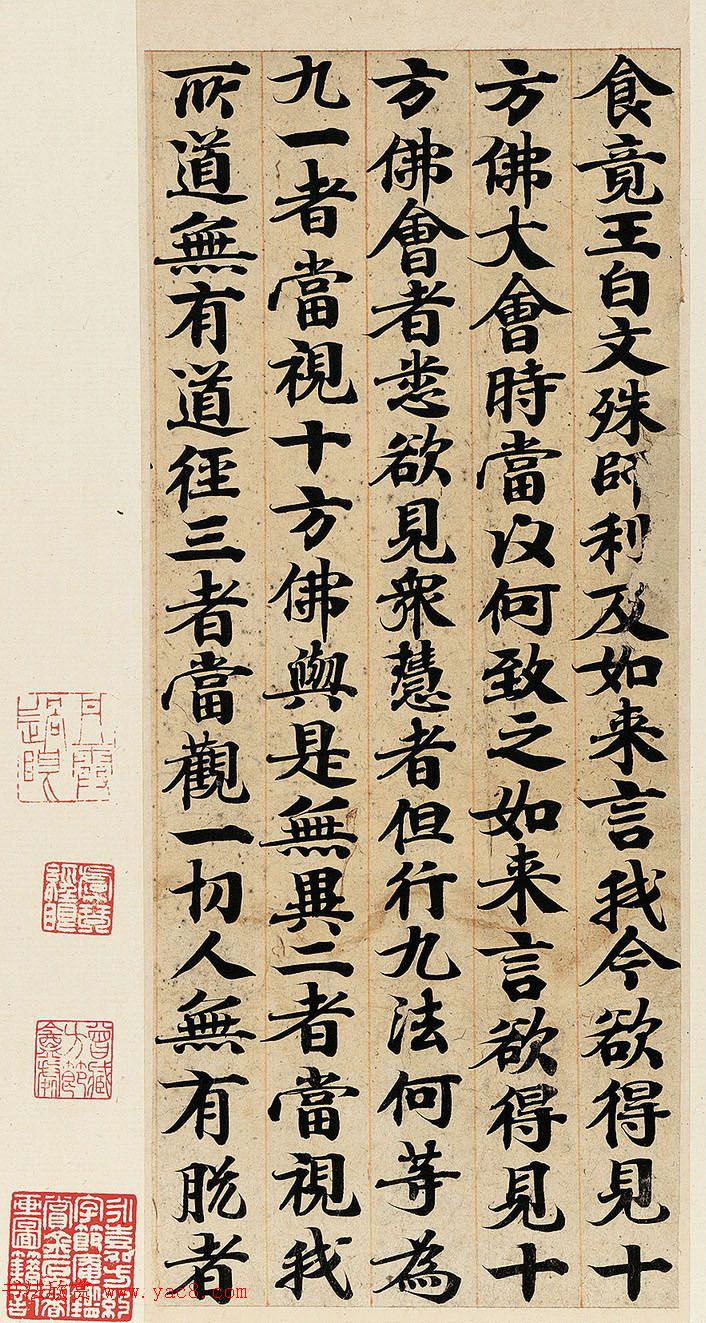 食竟王白文殊師利及如来言我今欲得見十
方佛大會時當以何致之如来言欲得見十
方佛會者悉欲見衆慧者但行九法何等為
九一者當視十方佛與是無異二者當視我
所道無有道徑三者當觀一切人無有脱者
曾藏方節盦處
www.yac8.com